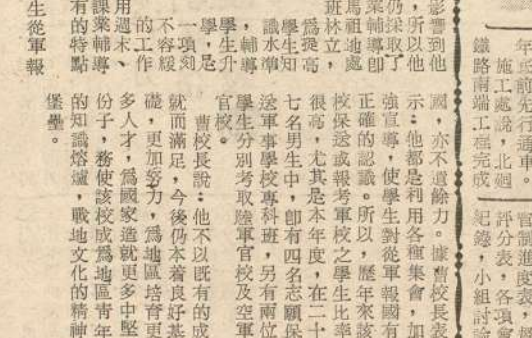 年底前行通車。
施工處說，北迴
鐵路南端工程完成
管制進度表，
評分表，各項會
紀錄，小組討論
影響到他
，所以他
仍採取了
業輔導即
馬祖地處
班林立，
爲提高
學生知
識水準
，輔導
學生升
學，是
一項刻
不容緩
的工作
用週末、
課業輔導
有的特點
生從軍報
國，亦不遺餘力。據曹校長表
示：他都是利用各種集會，加
強宣導，使學生對從軍報國有
正確的認識。所以，歷年來該
校保送或報考軍校之學生比率
很高，尤其是本年度，在二十
七名男生中，卽有四名志願保
送軍事學校專科班，另有兩位
學生分別考取陸軍官校及空軍
官校。
曹校長說：他不以既有的成
就而滿足，今後仍本着良好基
礎，更加努力，爲地區培育更
多人才，爲國家造就更多中堅
份子，務使該校成爲地區青年
的知識熔爐，戰地文化的精神
堡壘。